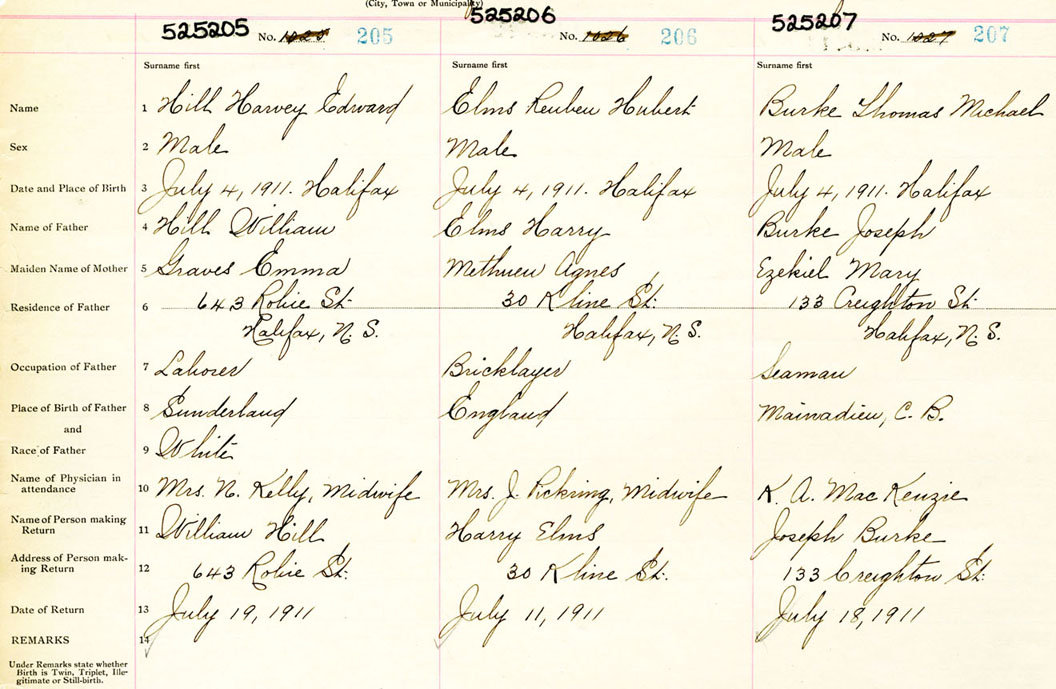 (City, Town or Municipality)
525205 No. 1025 205 525206 No. 1026 206 525207 No. 1027 207
Surname first Surname first Surname first
Name 1 Hill Harvey Edward Elms Reuben Hubert Burke Thomas Michael
Sex 2 Male Male Male
Date and Place of Birth 3 July 4, 1911. Halifax July 4, 1911. Halifax July 4, 1911. Halifax
Name of Father 4 Hill William Elms Harry Burke Joseph
Maiden Name of Mother 5 Graves Emma Methuen Agnes Ezekiel Mary
Residence of Father 6 643 Robie St. 30 Kline St. 133 Creighton St.
Halifax, N. S. Halifax, N. S. Halifax, N. S.
Occupation of Father 7 Laborer Bricklayer Seaman
Place of Birth of Father 8 Sunderland England Mainadieu, C. B.
and
Race of Father 9 White
Name of Physician in
attendance 10 Mrs. N. Kelly, Midwife Mrs. J. Pickring, Midwife K. A. MacKenzie
Name of Person making
Return 11 William Hill Harry Elms Joseph Burke
Address of Person mak-
ing Return 12 643 Robie St. 30 Kline St. 133 Creighton St.
Date of Return 13 July 19, 1911 July 11, 1911 July 18, 1911
REMARKS 14
Under Remarks state whether
Birth is Twin, Triplet, Ille-
gitimate or Still-birth.